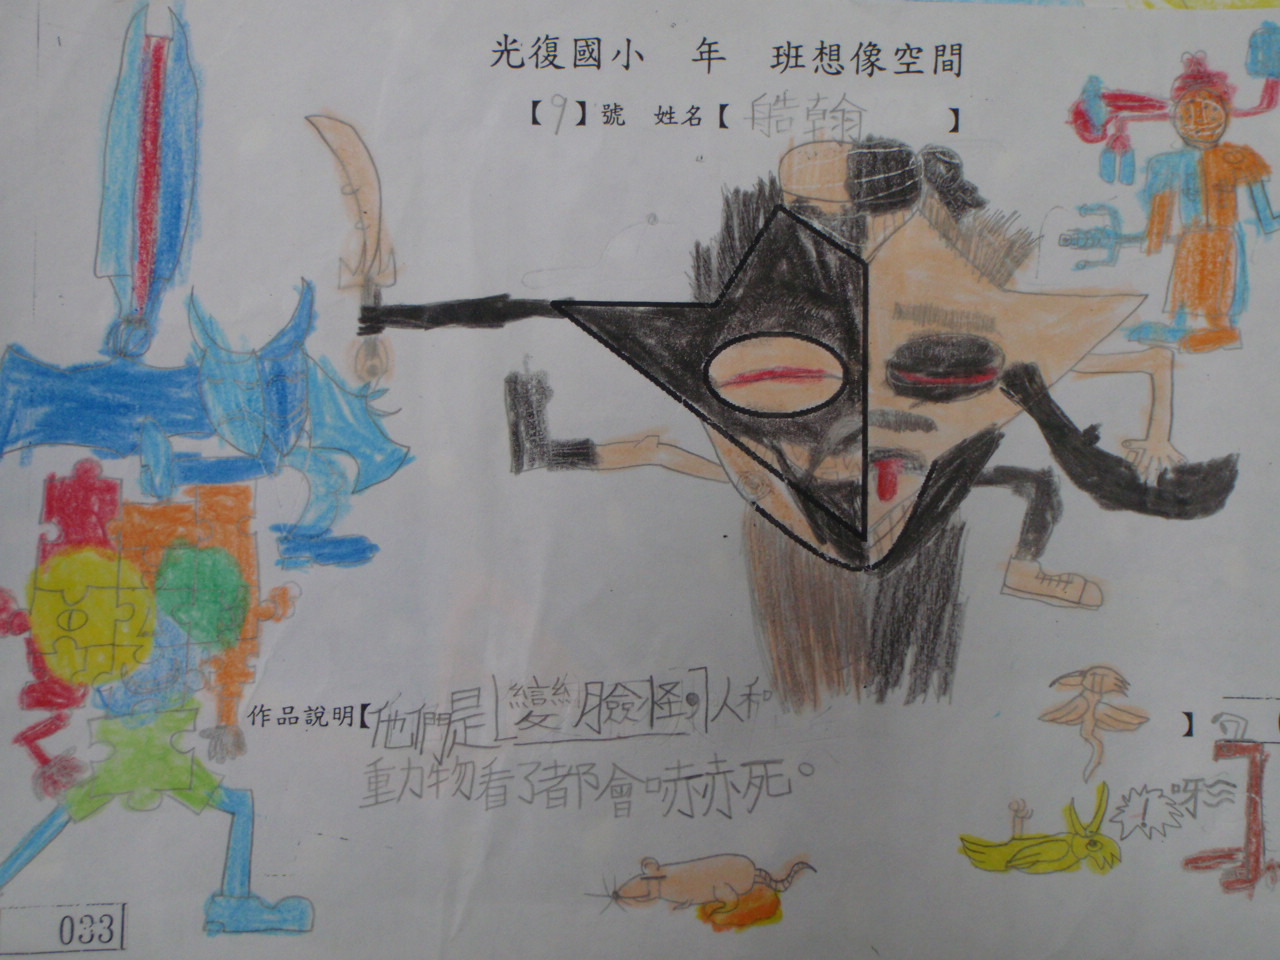 光復國小 年 班想像空間
【9】號 姓名【 皓翰 】
作品說明【他們是「變臉怪」人和 】
動物看了都會嚇死。
! 呀
033